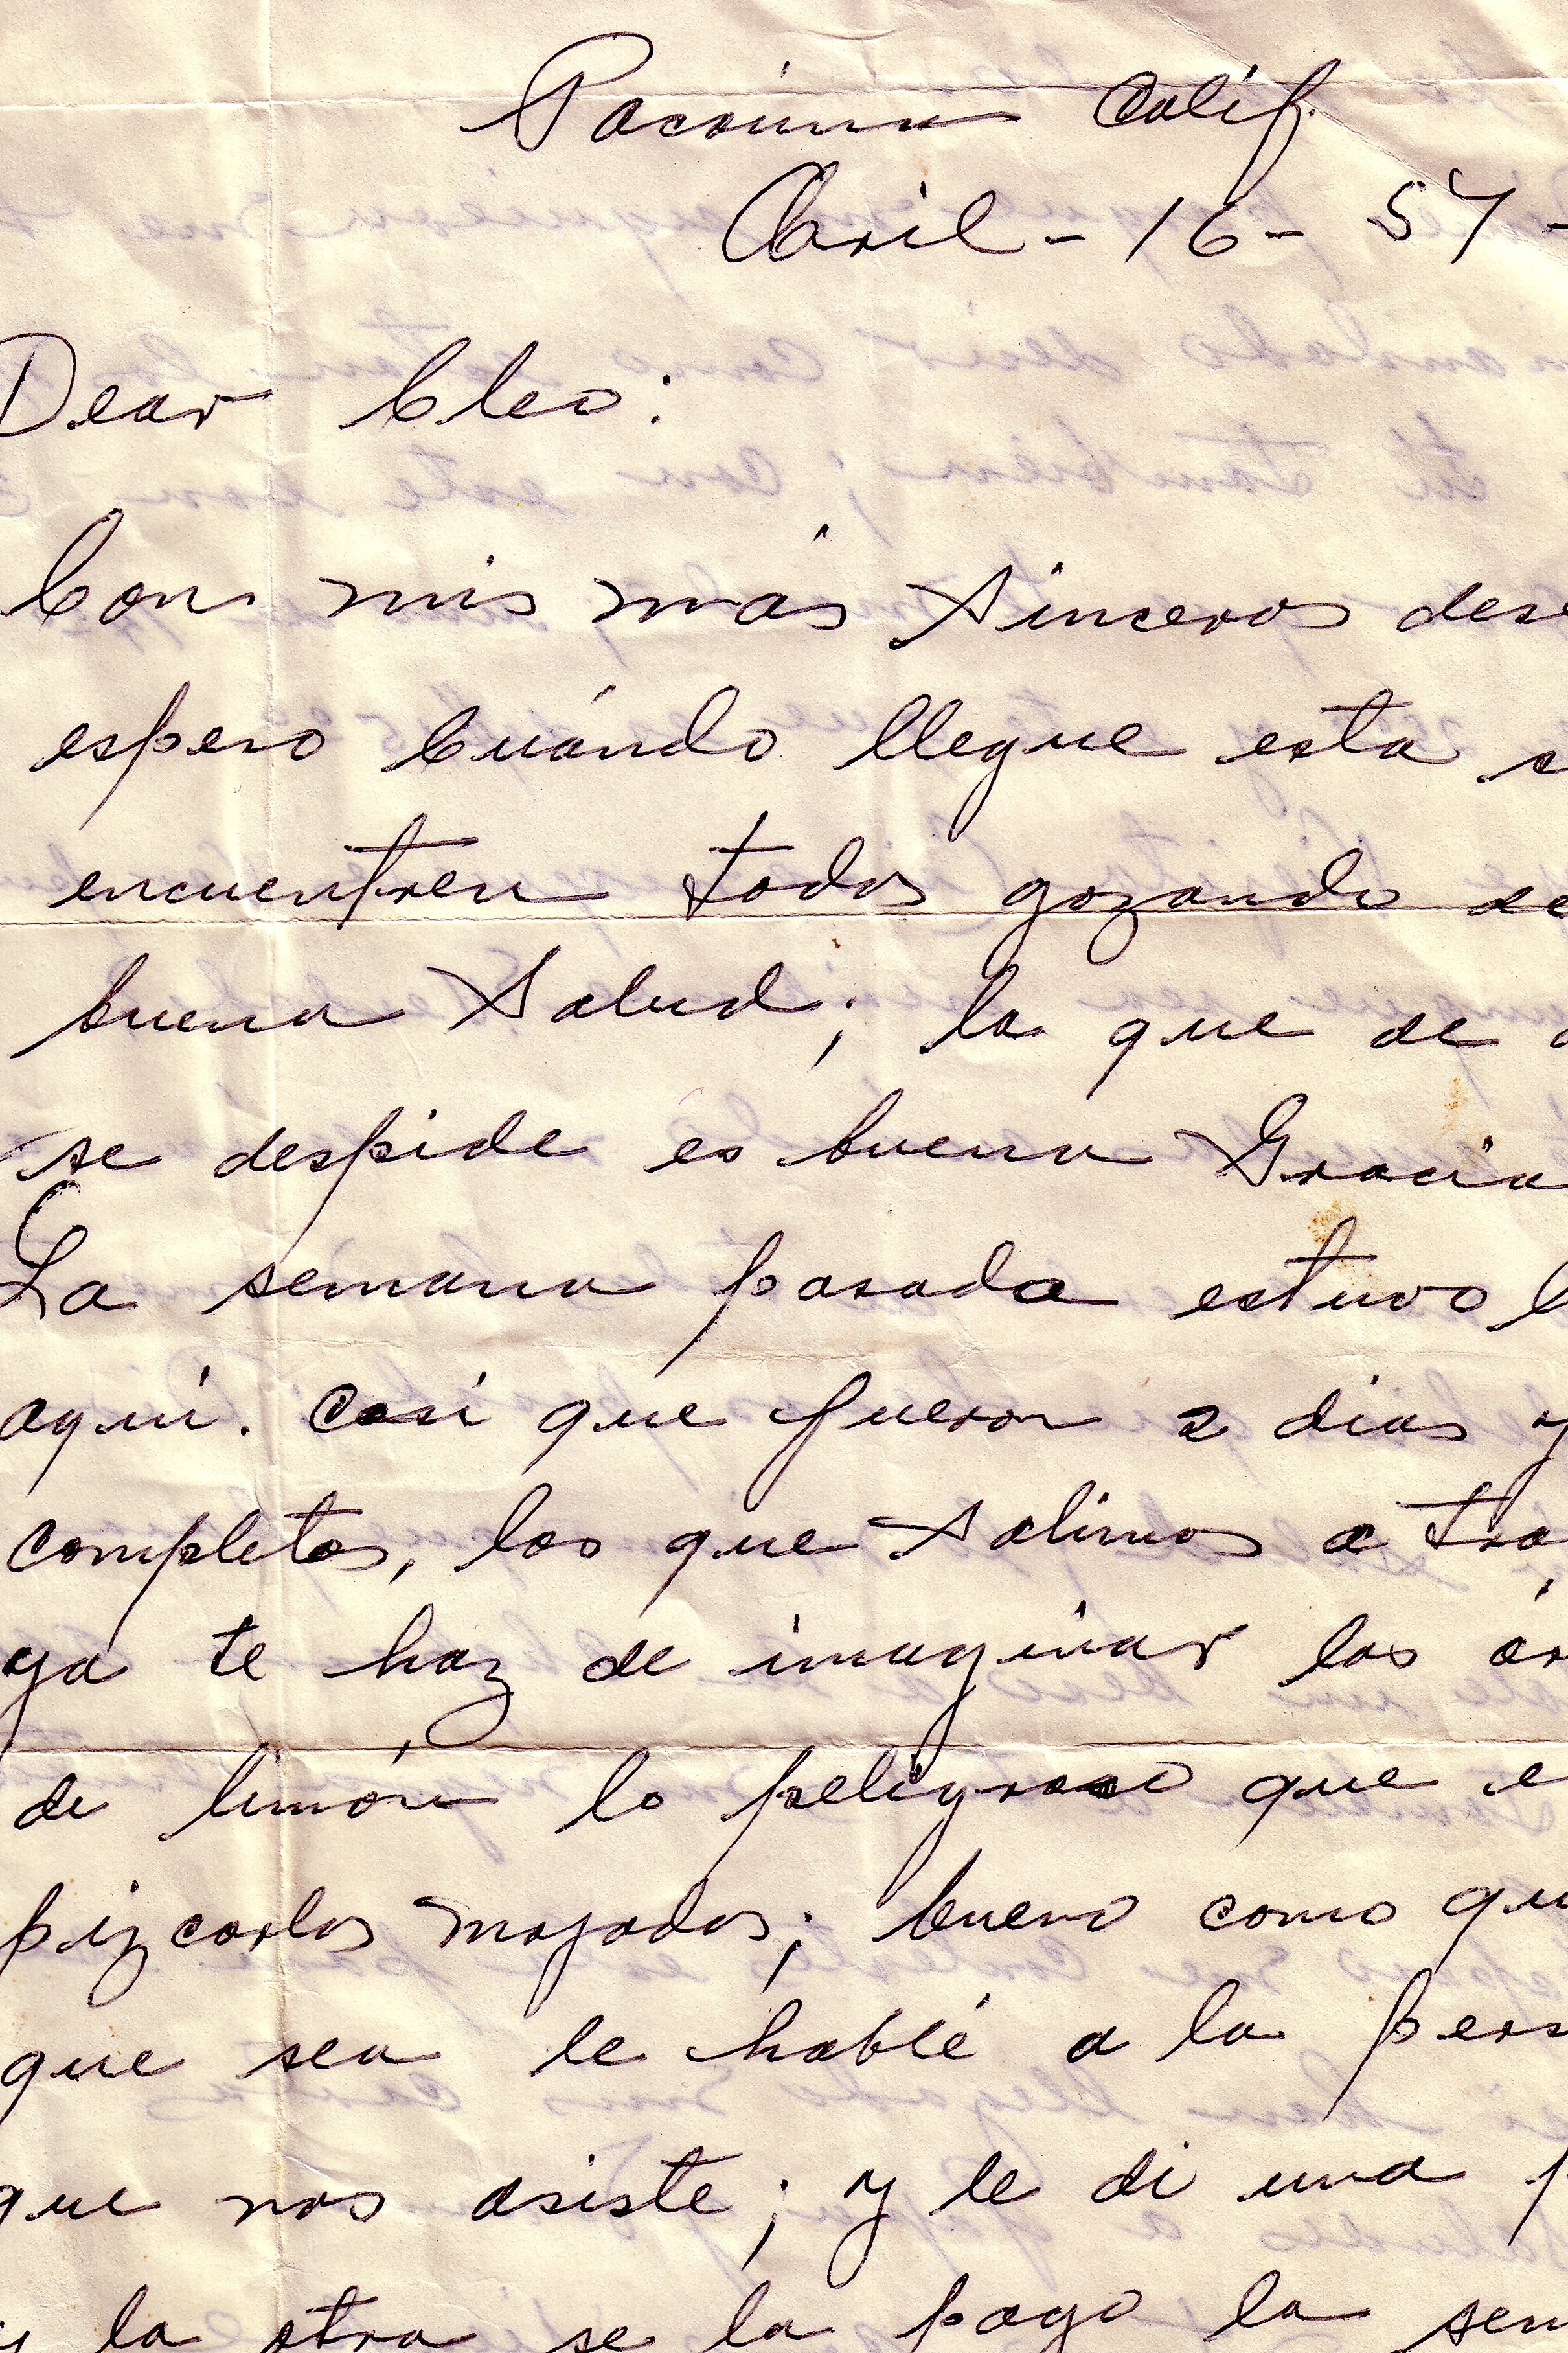 Pacoima Calif.
Abril - 16 - 57 -
Dear Cleo:
Con mis más sinceros dese
espero cuándo llegue esta s
encuentren todos gozando de
buena Salud; la que de
se despide es buena Gracia
La semana pasada estuvo
aquí. Casi que fueron 2 dias y
completos, los que salimos a tra
ya te haz de imaginar los ár
de limón lo peligroso que e
pizcarlos mojados; bueno como qu
que sea le hablé a la pers
que nos asiste; y le di una p
y la otra se la pago la sem